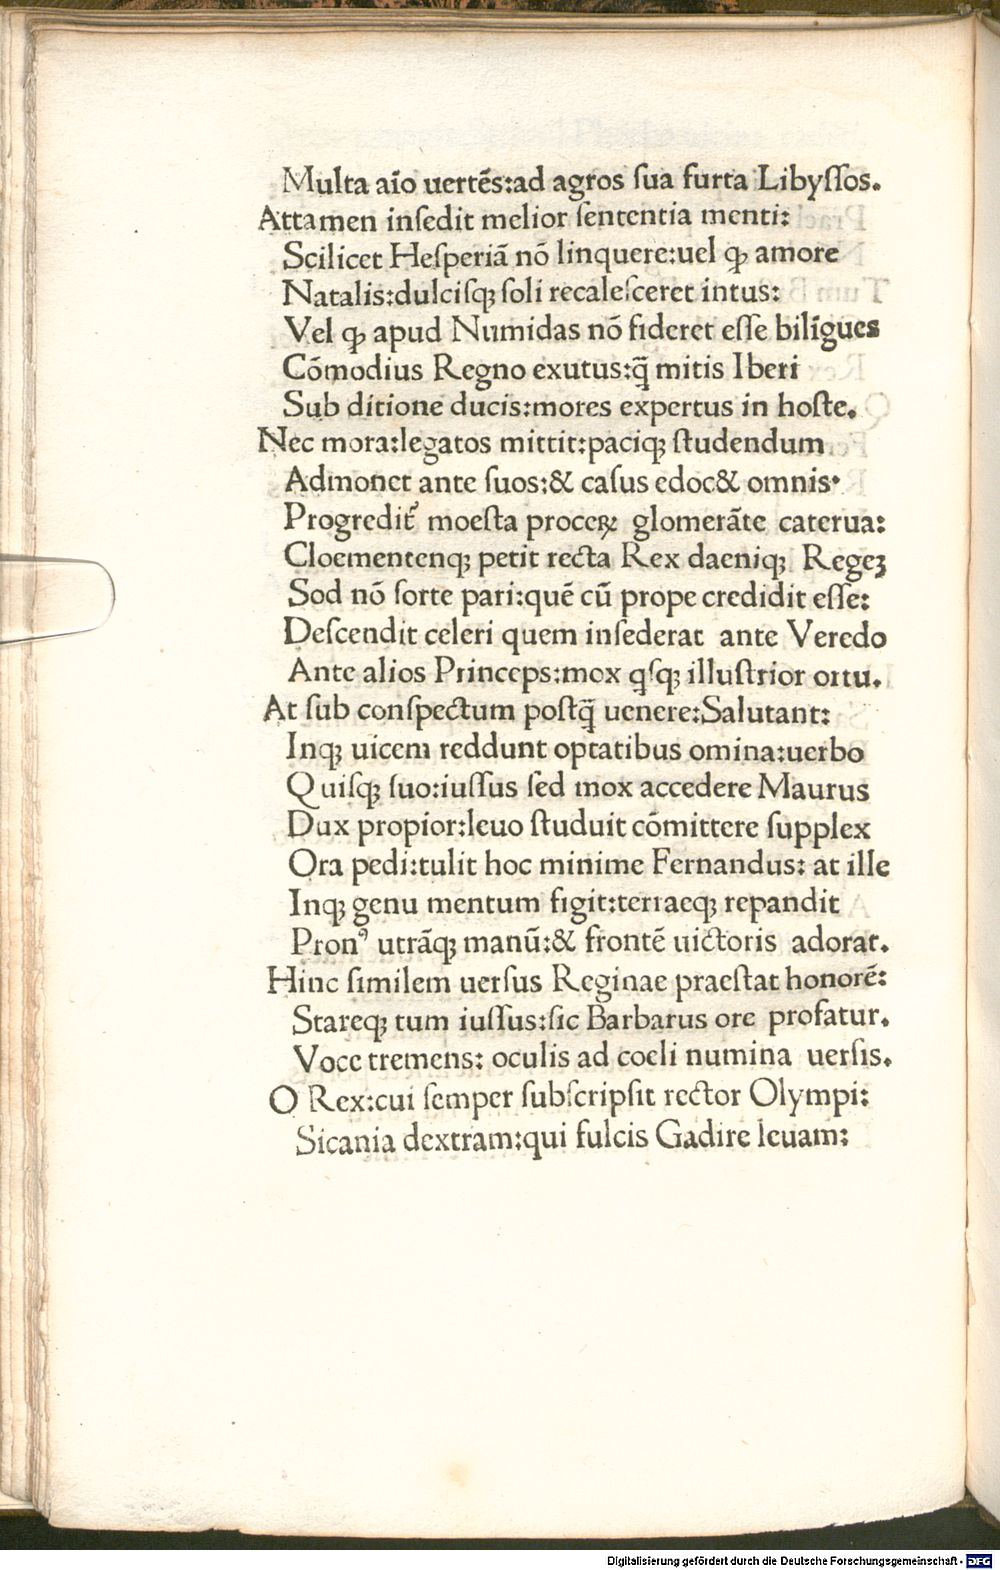 Multa aĩo uertẽs:ad agros ſua furta Libyſſos.
Attamen inſedit melior ſententia menti:
Scilicet Heſperiã nõ linquere:uel ꝙ amore
Natalis:dulciſqꝫ ſoli recaleſceret intus:
Vel ꝙ apud Numidas nõ fideret eſſe bilĩgues
Cõmodius Regno exutus:q̃ mitis Iberi
Sub ditione ducis:mores expertus in hoſte.
Nec mora:legatos mittit:paciqꝫ ſtudendum
Admonet ante ſuos:& caſus edoc& omnis·
Progredit᷒ moeſta proceꝝ glomerãte caterua:
Cloementenqꝫ petit recta Rex daeniqꝫ Regeꝫ
Sod nõ ſorte pari:quẽ cũ prope credidit eſſe:
Deſcendit celeri quem inſederat ante Veredo
Ante alios Princeps:mox qſqꝫ illuſtrior ortu.
At ſub conſpectum poſtq̃ uenere:Salutant:
Inqꝫ uicem reddunt optatibus omina:uerbo
Quiſqꝫ ſuo:iuſſus ſed mox accedere Maurus
Dux propior:leuo ſtuduit cõmittere ſupplex
Ora pedi:tulit hoc minime Fernandus: at ille
Inqꝫ genu mentum figit:terraeqꝫ repandit
Pronꝰ utrãqꝫ manũ:& frontẽ uictoris adorat.
Hinc ſimilem uerſus Reginae praeſtat honorẽ:
Stareqꝫ tum iuſſus:ſic Barbarus ore profatur.
Voce tremens: oculis ad coeli numina uerſis.
O Rex:cui ſemper ſubſcripſit rector Olympi:
Sicania dextram:qui fulcis Gadire leuam:
Digitalisierung gefördert durch die Deutsche Forschungsgemeinschaft - DFG